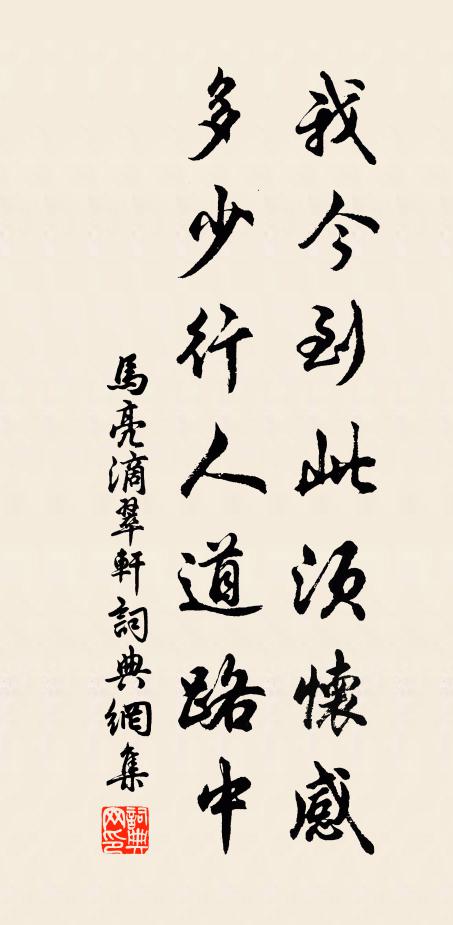 我今到此須懷感
多少行人道路中
馬亮滴翠軒詞典網集
詞典網印